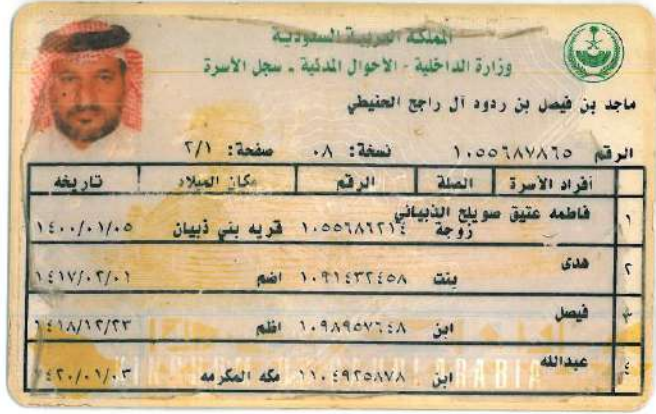 المملكة العربية السعودية
وزارة الداخلية - الأحوال المدنية - سجل الأسرة
ماجد بن فيصل بن ردود آل راجح الحنيطي
الرقم ١٠٥٥٦٨٧٨٦٥ نسخة: ٠٨ صفحة: ٢/١
أفراد الأسرة الصلة الرقم مكان الميلاد تاريخه
١ فاطمه عتيق صويلح الذبياني زوجة ١٠٥٥٦٨٦٢١٤ قريه بني ذبيان ١٤٠٠/٠١/٠٥
٢ هدى بنت ١٠٩١٤٣٢٤٥٨ اضم ١٤١٧/٠٢/٠١
٣ فيصل ابن ١٠٩٨٩٥٧٦٤٨ اظم ١٤١٨/١٢/٢٣
٤ عبدالله ابن ١١٠٤٩٢٥٨٧٨ مكه المكرمه ١٤٢٠/٠١/٠٣